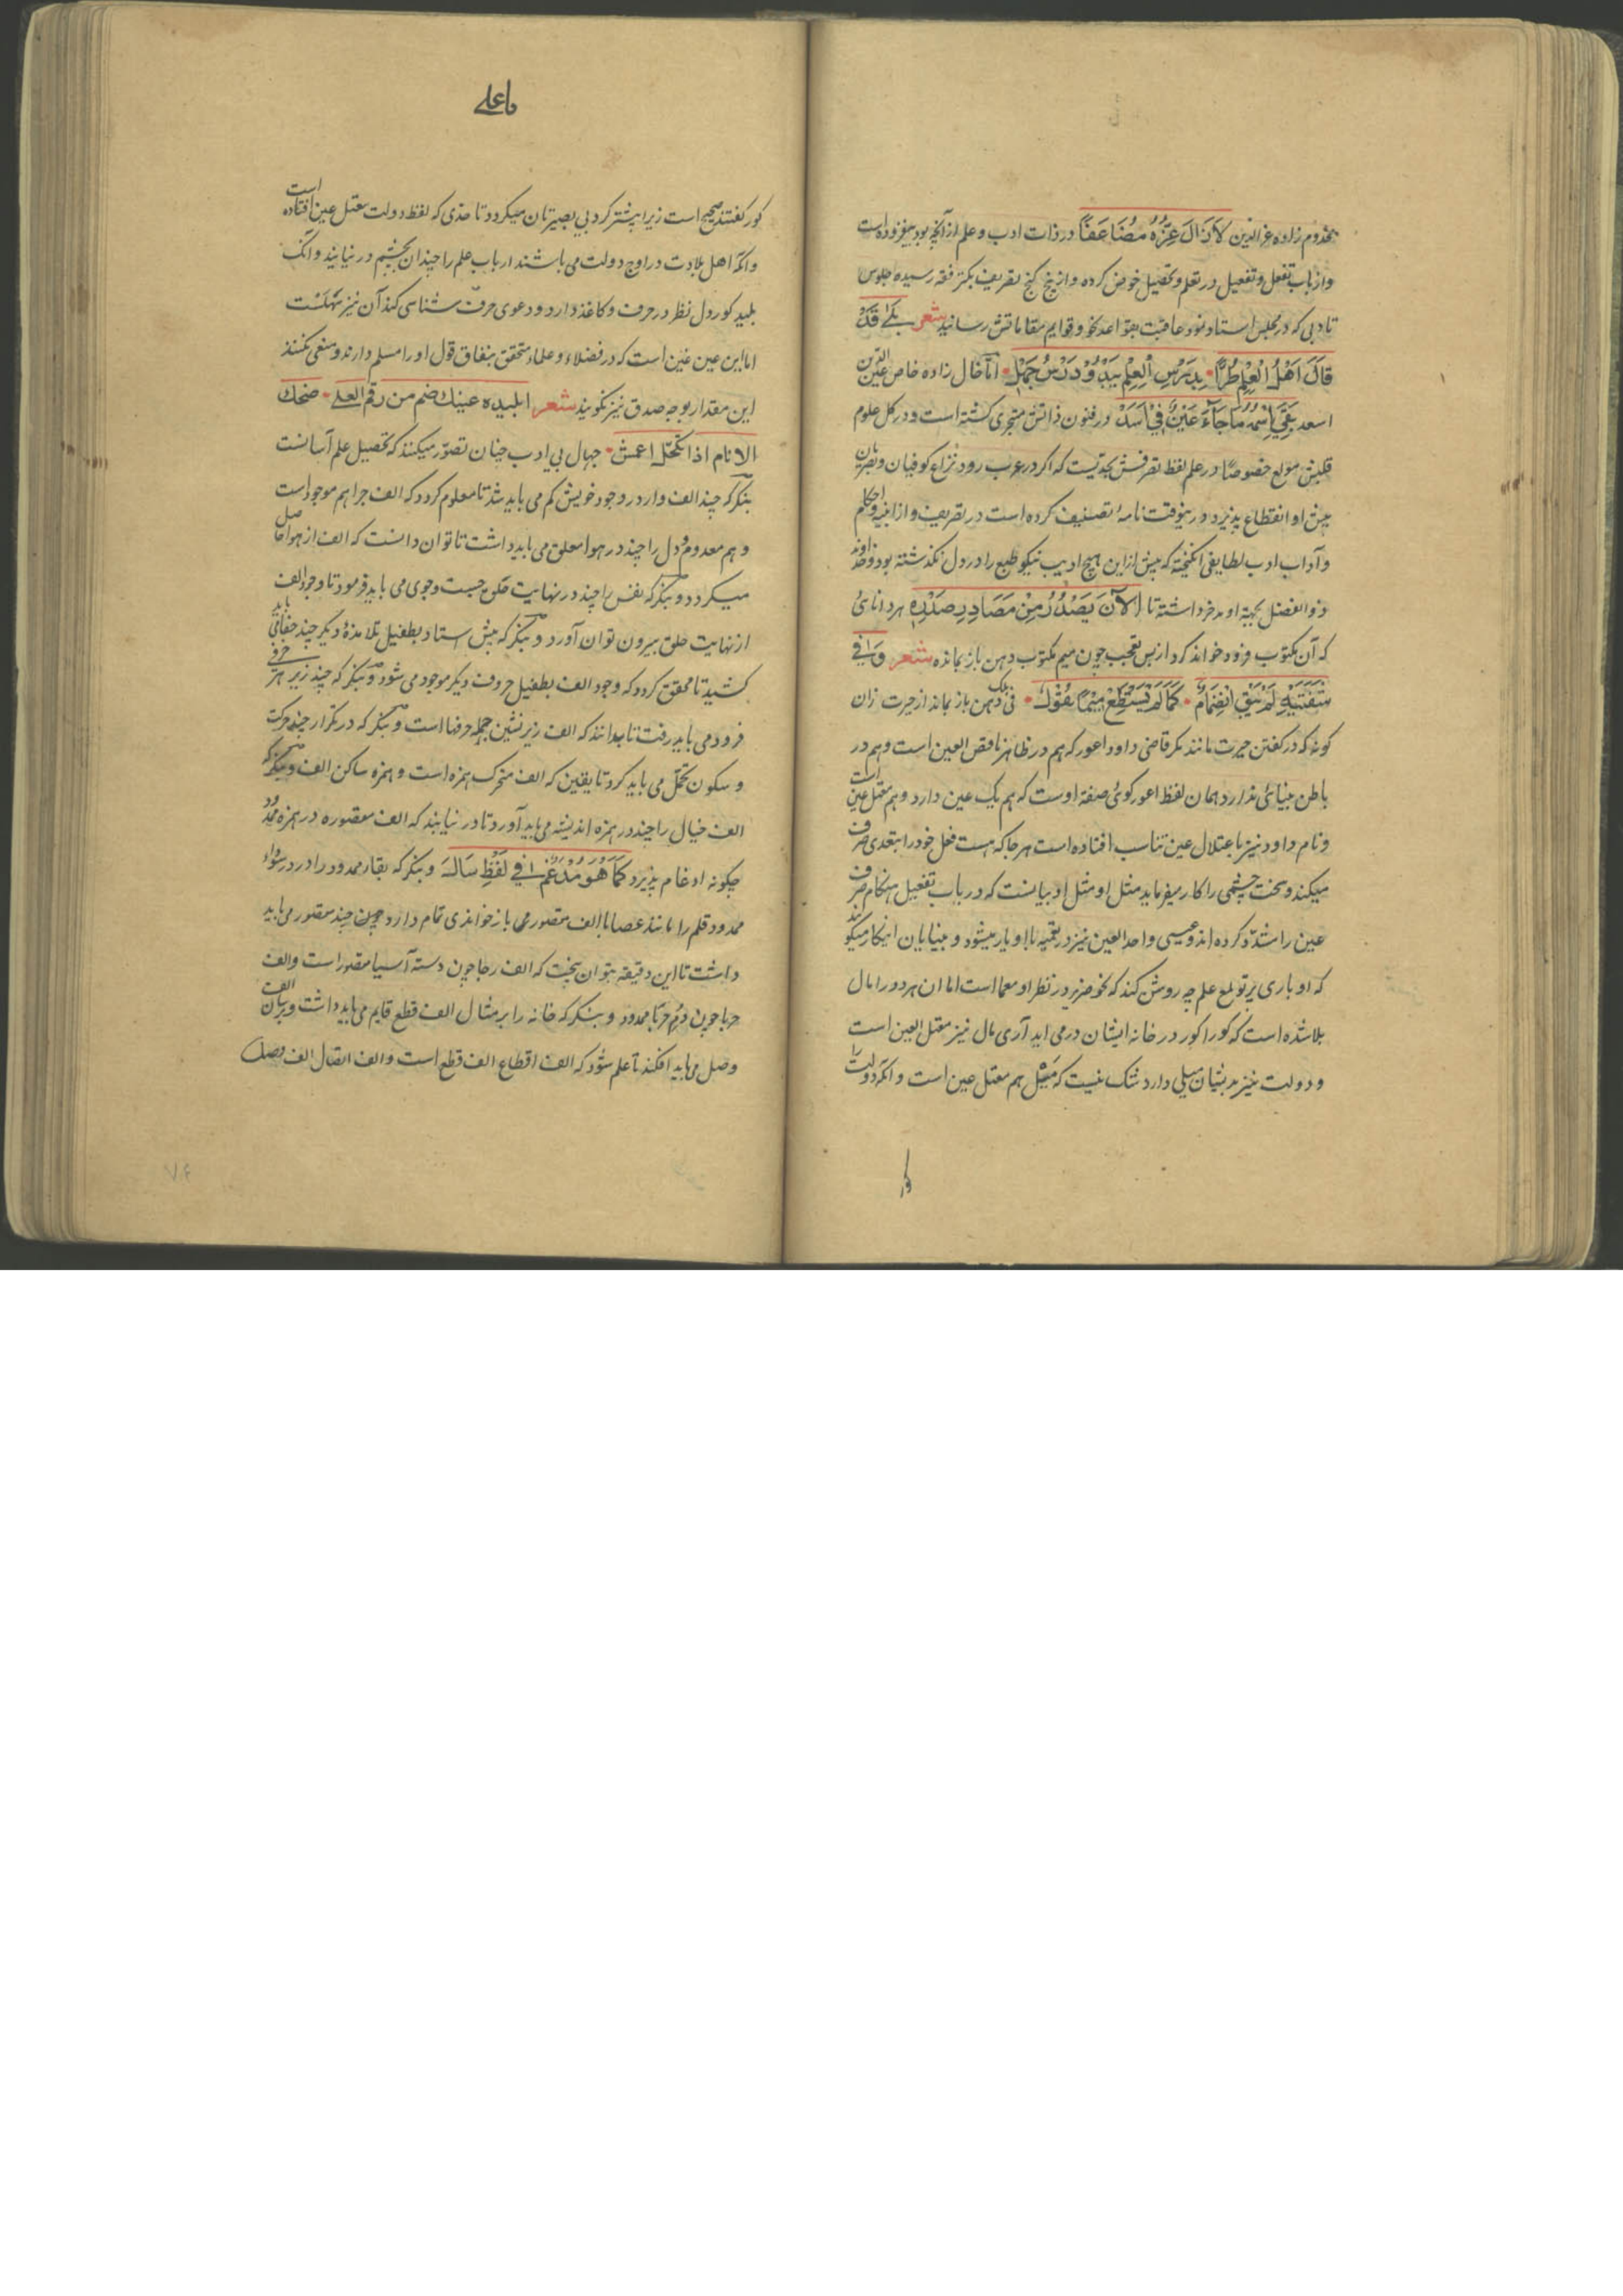 مخدوم زاده عز الدین لَازَالَ عِزُّهُ مُضَاعَفًا در ذات ادب و علم از آنچه بود بیفزوده است
و از باب تفعل و تفعیل در تعلم و تحصیل خوض کرده و از رنج گنج تصریف بکنز فقه رسیده جلوس
تادبی که در مجلس استاد نمود عاقبت بقواعد نحو و قوایم مقاماتش رسانید شعر بَلٰی قَدْ
قَالَ اَهْلُ الْعِلْمِ طُرًّا • بِدَرْسِ الْعِلْمِ یَبْدُو دَرْسُ جَهْلٍ • اما خال زاده خاص عین الدین
اسعد بَقِیَ اِسْمُهُ مَا جَآءَ عَیْنٌ فِیْ اَسَدْ در فنون ذاتش متبحری گشته است و در کل علوم
قلبش مولع خصوصًا در علم لفظ تصرفش بحدیست که اگر در عرب رود نزاع کوفیان و بصریان
پیش او انقطاع پذیرد و درینوقت نامهٔ تصنیف کرده است در تصریف و از ابنیه و احکام
و آداب ادب لطایفی انگیخته که پیش ازین هیچ ادیب نیکو طبع را در دل نگذشته بود و خداوند
ذو الفضل بجهة او مدخر داشته تا اَلْآنَ یَصْدُرُ مِنْ مَصَادِرِ صَدْرِهِ هر دانائی
که آن مکتوب فرود خواند گرد از بس تعجب چون میم مکتوب دهن باز بمانده شعر وَ فِی
شَفَتَیْهِ لَمْ یَبْقَ انْضِمَامٌ • کَمَا لَمْ تَسْتَطِعْ مِیْمًا بِفُوْكَ • فی الجمله دهن باز بماند از حیرت زان
گونه که در گفتن حیرت مانند مگر قاضی داود اعور که هم در ظاهر ناقص العین است و هم در
باطن بینائی ندارد همان لفظ اعور گوئی صفة اوست که هم یک عین دارد و هم معتل عین است
و نام داود نیز باعتلال عین تناسب افتاده است هر جا که هست فعل خود را بتعدی صرف
میکند و سخت چشمی را کار میفرماید مثل او مثل ادبیانست که در باب تفعیل هنگام صرف
عین را مشدّد کرده اند و عیسی واحد العین نیز در تعمیه با او یار میشود و بینایان انکار میکنند
که او باری پرتو لمع علم چه روشن کند که نحو ضریر در نظر او معما است اما ان هر دو را مال
بلا شده است که کور اکور در خانه ایشان درمی اید آری مال نیز معتل العین است
و دولت نیز بدیشان میلی دارد شک نیست که میل هم معتل عین است و آنکه دولت را
کور
یا علی
کور گفتند صحیح است زیرا بیشتر گرد بی بصیرتان میگردد تا حدی که لفظ دولت معتل عین افتاده است
و آنکه اهل بلادت در اوج دولت می باشند ارباب علم را چندان بچشم درنیابند و آنک
بلید کوردل نظر در حرف و کاغذ دارد و دعوی حرف شناسی کند آن نیز سهلست
اما این عین غین است که در فضلاء و علماء متحقق بنفاق قول او را مسلم دارند و منعی نکنند
این مقدار بوجه صدق نیز نگویند شعر ابلیده عینك ضم من رقم العلی • ضحك
الانام اذا تکحّل اعمش • جهال بی ادب چنان تصوّر میکنند که تحصیل علم آسانست
بنگر که چند الف وار در وجود خویش گم می باید شد تا معلوم گردد که الف چرا هم موجود است
و هم معدوم و دل را چند در هوا معلق می باید داشت تا توان دانست که الف از هوا حاصل
میگردد و بنگر که نفس را چند در نهایت حلق جست وجوی می باید فرمود تا وجود الف
از نهایت حلق بیرون توان آورد و بنگر که پیش استاد بطفیل تلامذهٔ دیگر چند جفا می باید
کشید تا محقق گردد که وجود الف بطفیل حروف دیگر موجود می شود و بنگر که چند زیر هر حرفی
فرود می باید رفت تا بدانند که الف زیرنشین جمله حرفها است و بنگر که در تکرار چند حرکت
و سکون تحمّل می باید کرد تا یقین که الف متحرک همزه است و همزه ساکن الف و بنگر که
الف خیال را چند در همزه اندیشه می باید آورد تا دریابند که الف مقصوره در همزه ممدود
چگونه ادغام پذیرد کَمَا هُوَ مُدْغَمٌ فِی لَفْظِ سَالَهَ و بنگر که بقار ممدود را در درسواد
ممدود قلم را مانند عصا با الف مقصور می باز خواندی تمام دارد چون چند مقصور می باید
داشت تا این دقیقه بتوان پخت که الف رحا چون دسته آسیا مقصور است و الف
حربا چون دُم حربا ممدود و بنگر که خانه را بر مثال الف قطع قایم می باید داشت و بر سان الف
وصل می باید افکند تا علم شود که الف اقطاع الف قطع است و الف اتصال الف وصل
۷۴